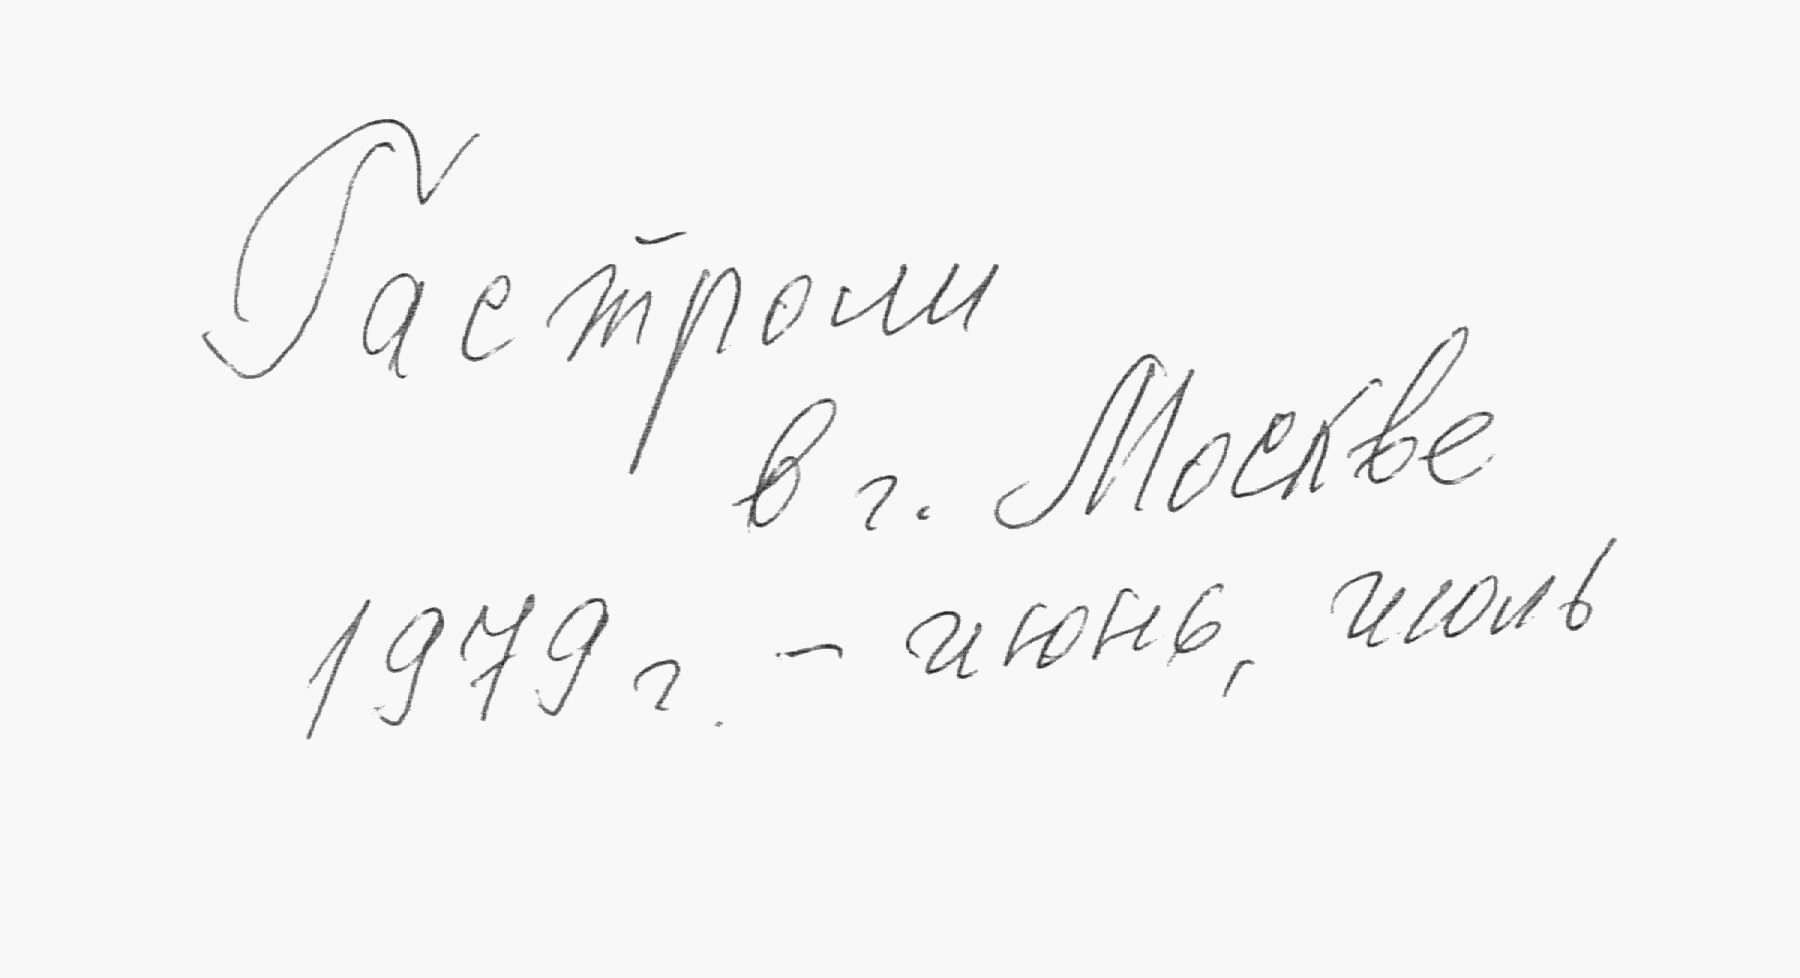 Гастроли
в г. Москве
1979 г. - июнь, июль